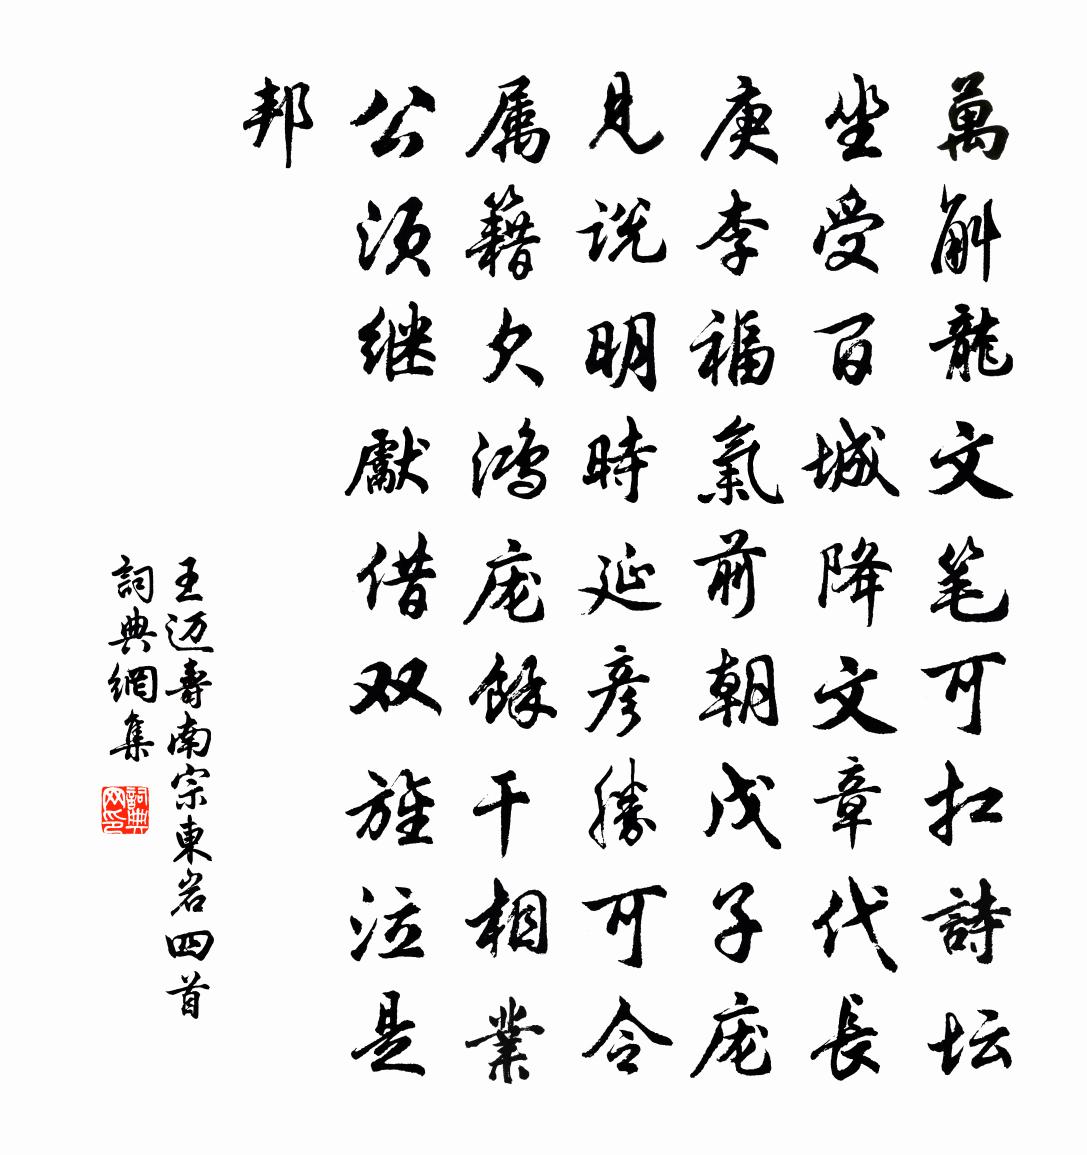 萬斛龍文笔可扛詩坛
坐受百城降文章代長
庚李福氣前朝戊子庞
見说明時延彦勝可令
属籍欠鸿庞餘干相業
公须继獻借双旌泣是
邦
王迈壽南宗東岩四首
詞典網集
詞典网印